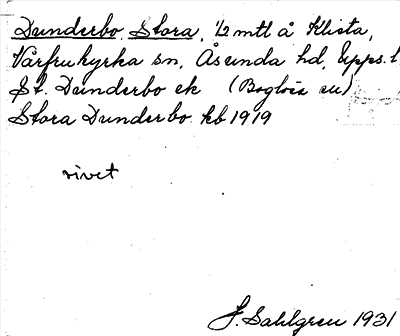 Dunderbo, Stora, ½ mtl å Klista,
Vårfrukyrka sn, Åsunda hd, Upps. l
St. Dunderbo ek (Boglösa eu)
Stora Dunderbo kb 1919
rivet
J. Sahlgren 1931